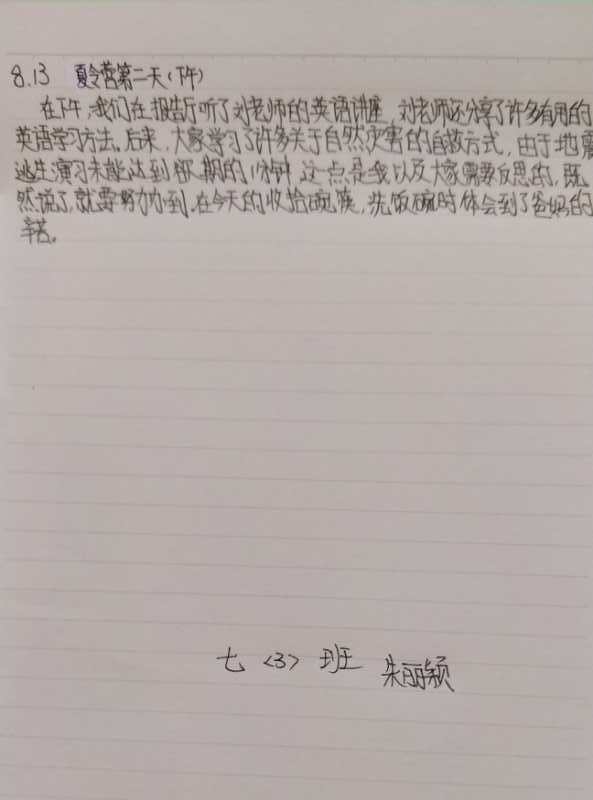 8.13 夏令营第二天(下午)
在下午,我们在报告厅听了刘老师的英语讲座,刘老师还分享了许多有用的
英语学习方法。后来,大家学习了许多关于自然灾害的自救方式,由于地震
逃生演习未能达到预期的1分钟,这点是我以及大家需要反思的,既
然说了,就要努力办到。在今天的收拾碗筷,洗饭碗时体会到了爸妈的
辛苦。
七〈3〉班 朱丽颖